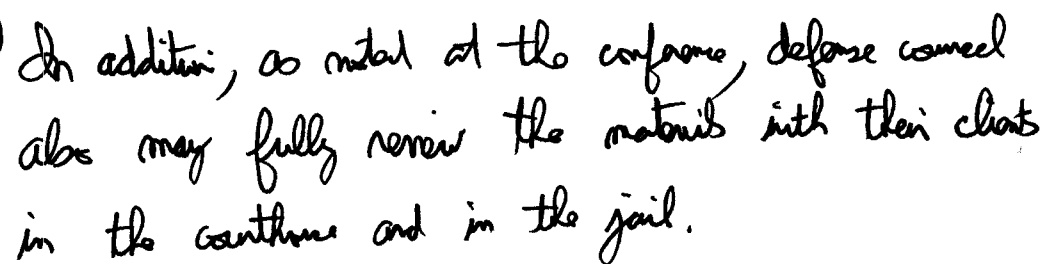 In addition, as noted at the conference, defense counsel
also may fully review the materials with their clients
in the courthouse and in the jail.